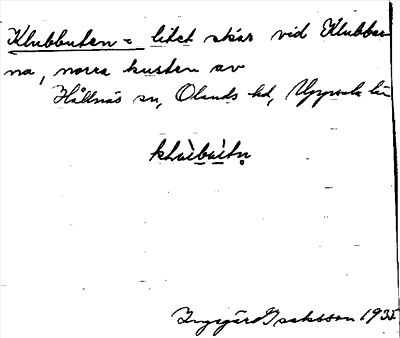 Klubbuten = litet skär vid Klubbar
na, norra kusten av
Hållnäs sn, Olands hd, Uppsala län
Ingegärd Isaksson 1935